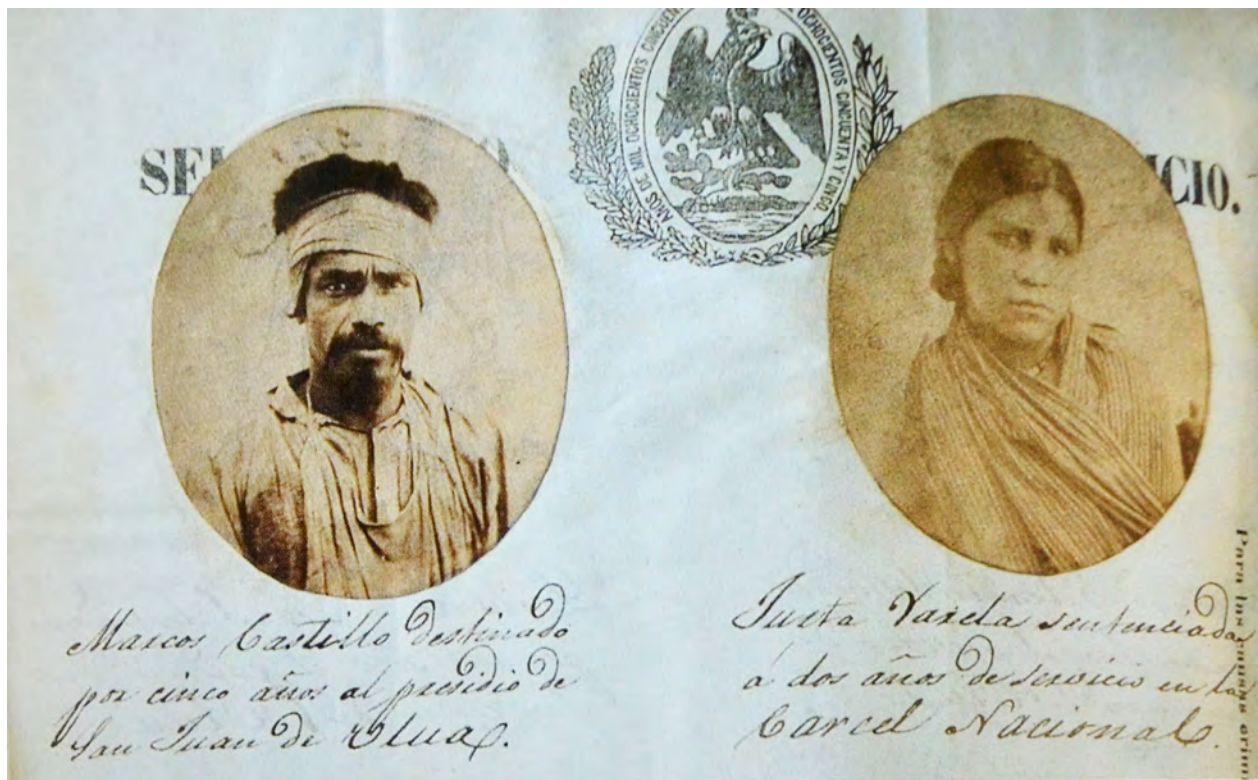 AÑOS DE MIL OCHOCIENTOS CINCUENTA OCHOCIENTOS CINCUENTA Y CINCO
SE
ICIO.
Marcos Castillo destinado
por cinco años al presidio de
San Juan de Ulua.
Justa Varela sentenciada
á dos años de servicio en la
Carcel Nacional.
Para las causas crim